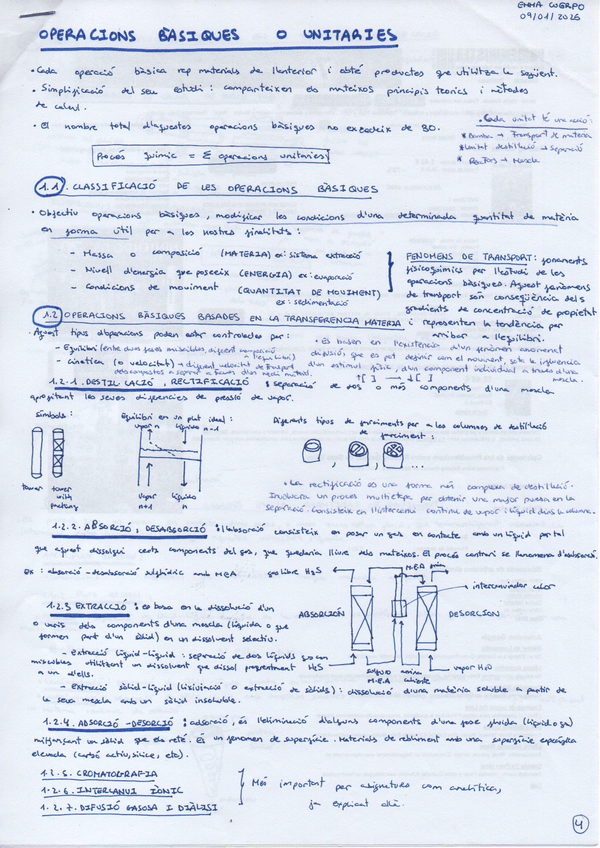 EMMA CUERPO
09/01/2026
OPERACIONS BÀSIQUES O UNITARIES
• Cada operació bàsica rep materials de l'anterior i obté productes que utilitza la següent.
• Simplificació del seu estudi: comparteixen els mateixos principis teorics i mètodes
de calcul.
• El nombre total d'aquestes operacions bàsiques no excedeix de 30.
• Cada unitat té una acció:
* Bomba → Transport de matèria
* Unitat destil·lació → Separació
* Reactors → Mescla
Procés químic = Σ operacions unitaries
1.1. CLASSIFICACIÓ DE LES OPERACIONS BÀSIQUES
• Objectiu operacions bàsiques, modificar les condicions d'una determinada quantitat de matèria
en forma útil per a les nostres finalitats:
- Massa o composició (MATERIA) ex: sistema extracció
- Nivell d'energia que posseeix (ENERGIA) ex: evaporació
- Condicions de moviment (QUANTITAT DE MOVIMENT)
ex: sedimentació
FENOMENS DE TRANSPORT: fonaments
fisicoquímics per l'estudi de les
operacions bàsiques. Aquest fenòmens
de transport són conseqüència dels
gradients de concentració de propietat
i representen la tendència per
arribar a l'equilibri.
1.2 OPERACIONS BÀSIQUES BASADES EN LA TRANSFERENCIA MATERIA
• Aquest tipus d'operacions poden estar controlades per:
- Equilibri (entre dues fases miscibles, diferent composició
a l'equilibri)
- cinètica (o velocitat) → diferent velocitat de transport
dels compostos a separar a través d'un medi mutual
• Es basen en l'existència d'un fenòmen anomenat
difusió, que es pot definir com el moviment, sota la influència
d'un estímul físic, d'un component individual a través d'una
mescla.
↑[ ] → ↓[ ]
1.2.1. DESTIL·LACIÓ, RECTIFICACIÓ: separació de dos o més components d'una mescla
aprofitant les seves diferències de pressió de vapor.
Símbols:
tower
tower
with
packing
Equilibri en un plat ideal:
vapor n
líquid n-1
vapor
n+1
líquido
n
Diferents tipus de farciments per a les columnes de destil·lació
de farciment:
, , ...
• La rectificació es una forma més complexa de destil·lació.
Involucra un procés multietapa per obtenir una major puresa en la
separació. Consisteix en l'intercanvi continu de vapor i líquid dins la columna.
1.2.2. ABSORCIÓ, DESABSORCIÓ: l'absorció consisteix en posar un gas en contacte amb un líquid per tal
que aquest dissolgui certs components del gas, que quedaria lliure dels mateixos. El procés contrari se l'anomena d'esabsorció.
Ex: absorció-desabsorció sulfhídric amb MEA
gas libre H₂S
M.E.A fría
intercanviador calor
ABSORCIÓN
DESORCIÓN
H₂S
sulfuro
M.E.A
amina
caliente
vapor H₂O
1.2.3 EXTRACCIÓ: es basa en la dissolució d'un
o varis dels components d'una mescla (líquida o que
formen part d'un sòlid) en un dissolvent selectiu.
- Extracció líquid-líquid: separació de dos líquids no com
miscibles utilitzant un dissolvent que dissol preferentment
a un d'ells.
- Extracció sòlid-líquid (lixiviació o extracció de sòlids): dissolució d'una matèria soluble a partir de
la seva mescla amb un sòlid insoluble.
1.2.4. ADSORCIÓ-DESORCIÓ: adsorció, és l'eliminació d'alguns components d'una fase fluida (líquid o gas)
mitjançant un sòlid que els reté. És un fenomen de superfície. Materials de rebliment amb una superfície específica
elevada (carbó actiu, sílice, etc).
1.2.5. CROMATOGRAFIA
1.2.6. INTERCANVI IÒNIC
1.2.7. DIFUSIÓ GASOSA I DIÀLISI
Més important per asignatures com analítica,
ja explicat allà.
4